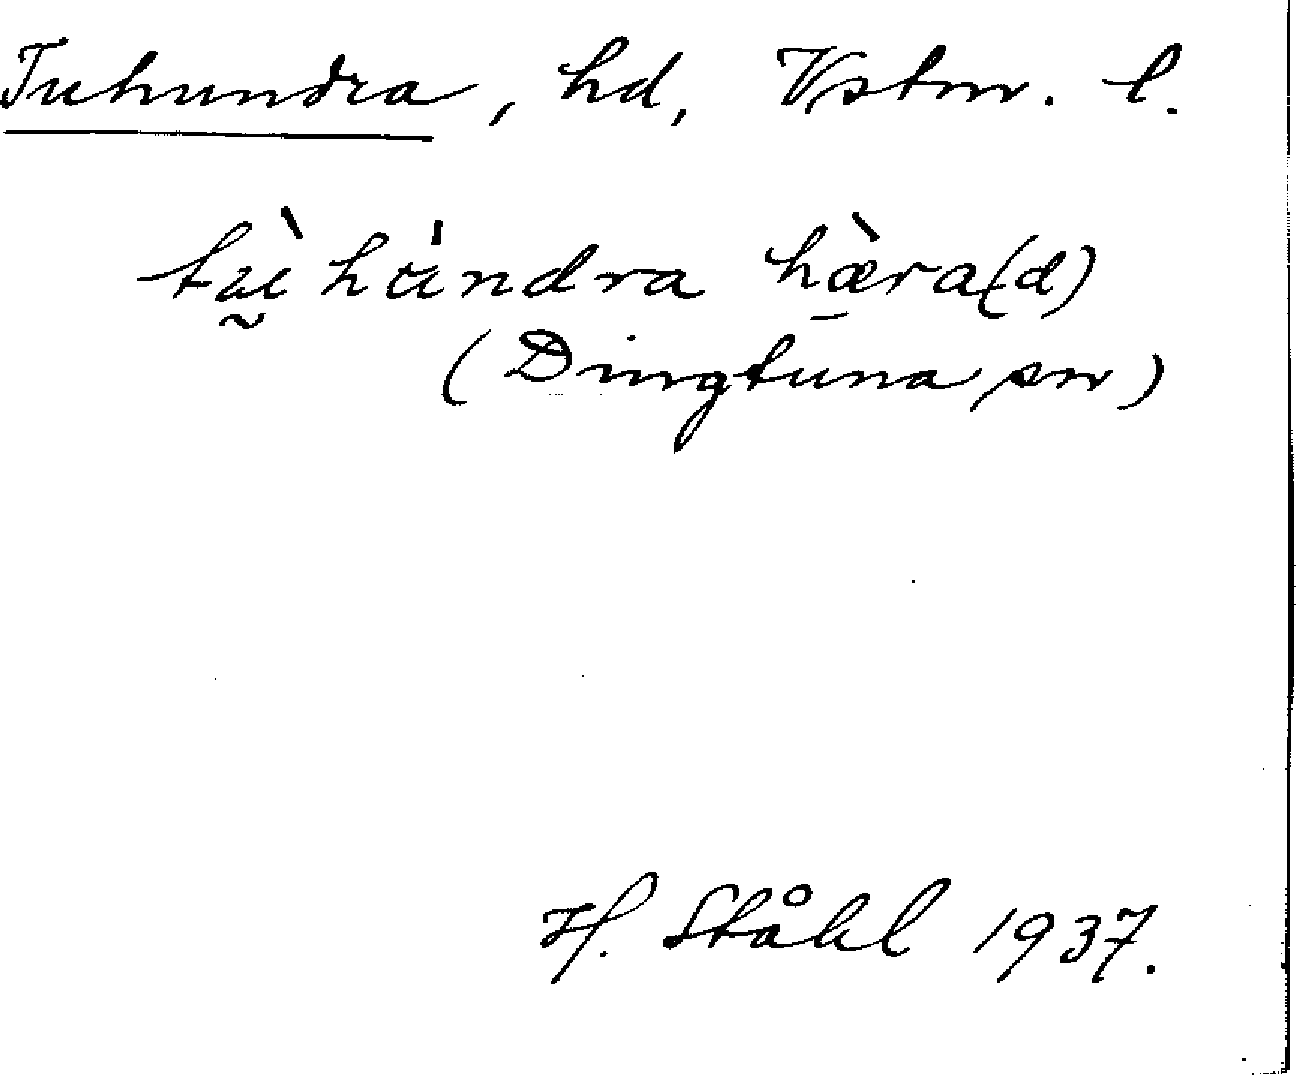 Tuhundra, hd, Vstm. l.
tṵ̀hu̇ndra hæ̱̀ra(d)
(Dingtuna sn)
H. Ståhl 1937.